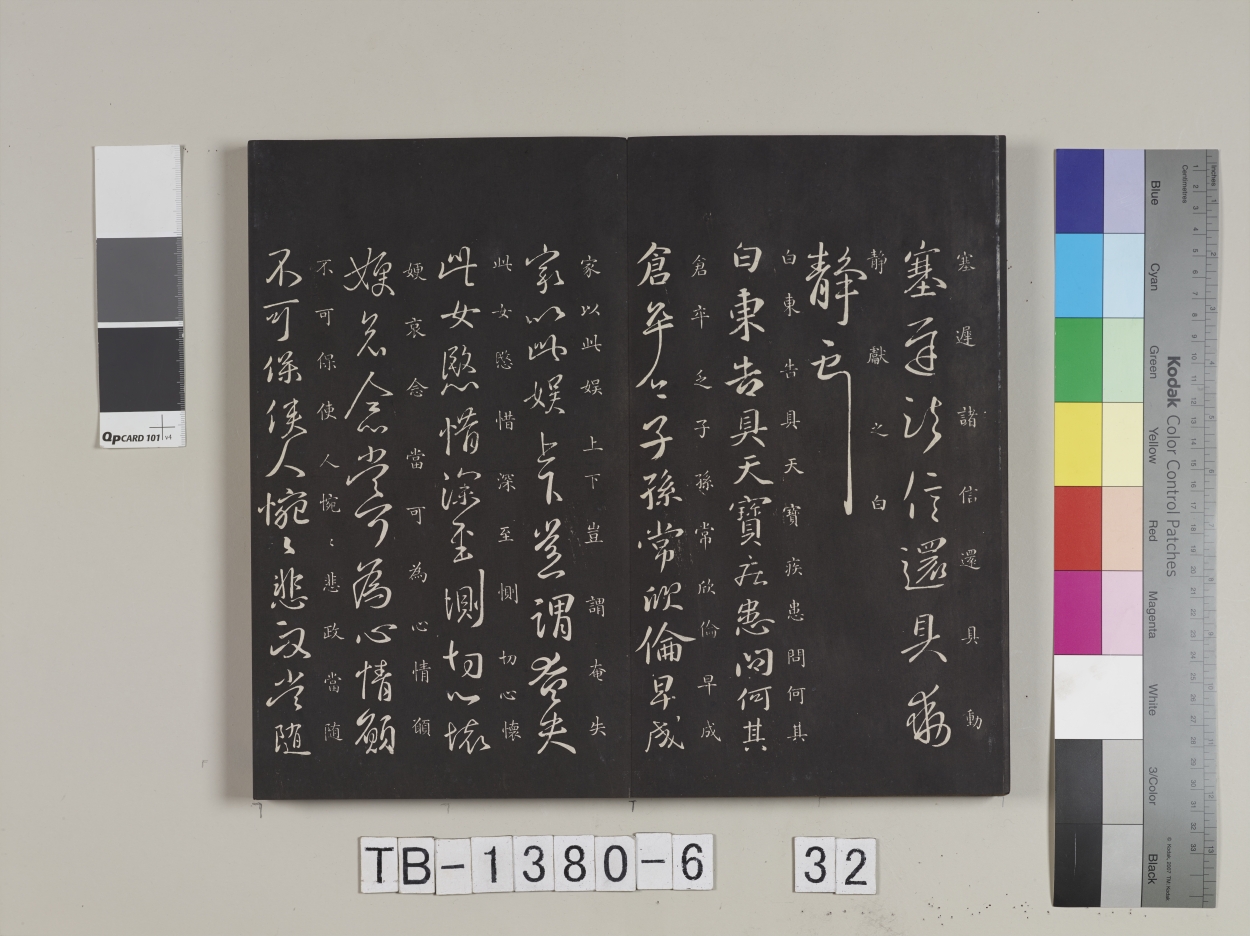 塞遲諸信還具動
塞遲諸信還具動
靜獻之白
靜獻之白
白東告具天寶疾患問何其
白東告具天寶疾患問何其
倉卒乏子孫常欣倫早成
倉卒乏子孫常欣倫早成
家以此娱上下豈謂奄失
家以此娱上下豈謂奄失
此女愍惜深至惻切心懷
此女愍惜深至惻切心懷
㛐哀念當可為心情願
㛐哀念當可為心情願
不可保使人惋〻悲政當随
不可保使人惋〻悲政當随
TB-1380-6 32
QpCARD 101 v4
Kodak Color Control Patches
Blue Cyan Green Yellow Red Magenta White 3/Color Black
inches
Centimetres
© Kodak, 2007 TM: Kodak